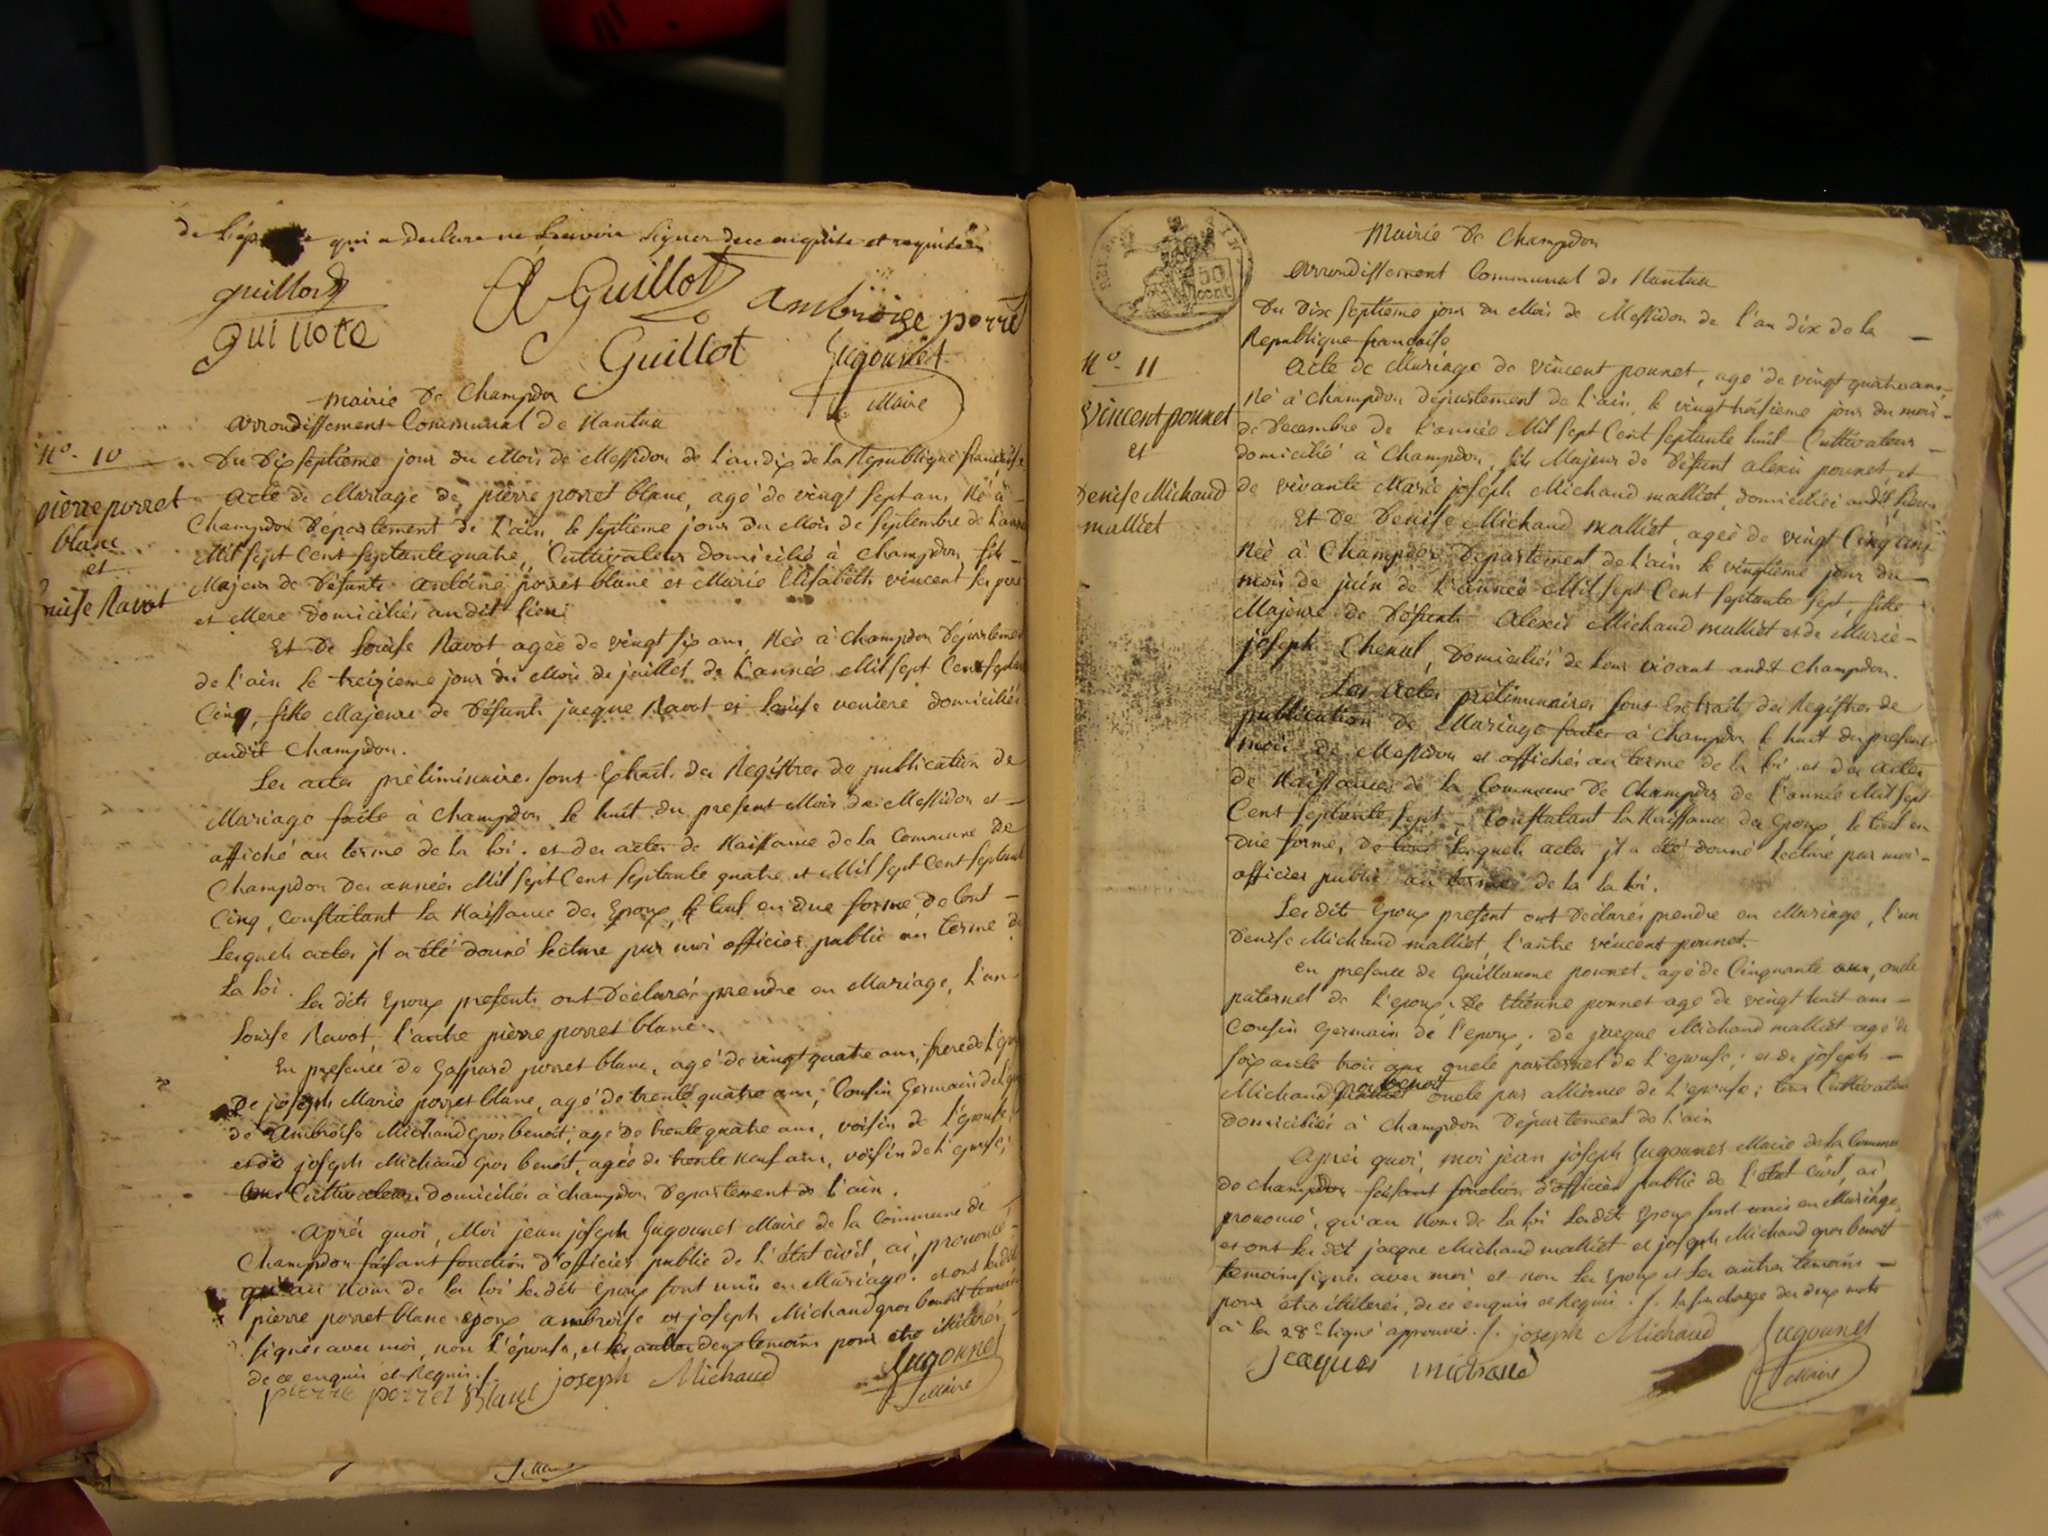 de L'ép qui a declaré ne Sçavoir Signer de ce enquise et requise
guillot
A Guillot
ambroise porret
guillote
Guillot
Gugonnet
Maire
Mairie De Champdor
arrondissement Communal de Nantua
N° 10
Du Dix septieme jour du Mois de Messidor de L'an dix de la Republique francaise
pierre porret
blanc
et
uise Ravot
acte de Mariage de pierre porret blanc, agé de vingt sept ans Né à
Champdor Département de L'ain, le septieme jour du Mois de Septembre de L'anné
Mil sept Cent septante quatre, Cultivateur domicilié à Champdor, fils
Majeur de Défunts antoine porret blanc et Marie Elisabeth vincent Ses pere
et Mere Domiciliés audit lieu
Et De Louise Ravot agée de vingt six ans, Née à Champdor Département
de L'ain le treizieme jour du Mois de juillet de L'année Mil sept Cent septante
Cinq, fille Majeure de Défunts jacque Ravot et Louise veniere domiciliés
audit Champdor.
Les actes préliminaires sont Extraits des Registres de publication de
Mariage faite à Champdor le huit du present Mois de Messidor et
affiché au terme de la loi. et des actes de Naissance de la Commune de
Champdor des années Mil sept Cent septante quatre et Mil sept Cent septante
Cinq, constatant la Naissance des Epoux, le tout en due forme, de tout
Lesquels actes il a été donné Lecture par moi officier public au terme de
La loi.
Les dits Epoux presents ont Déclarés prendre en Mariage, L'un
Louise Ravot, l'autre pierre porret blanc.
En presence de Gaspard porret blanc, agé de vingt quatre ans, frere de L'epoux
De joseph Marie porret blanc, agé de trente quatre ans, Cousin Germain de l'époux
de Ambroise Michaud gros benoit, agé de trente quatre ans, voisin de l'épouse
et de joseph Michaud gros benoit, agée de trente neuf ans, voisin de L'epouse,
tous Cultivateurs domiciliés à champdor Departement de L'ain.
Aprés quoi, Moi jean joseph Gugonnet Maire de la Commune de
Champdor faisant fonction D'officier public de L'état civil, ai, prononcé
qu'au nom de la loi Lesdits Epoux sont unis en Mariage. et ont lesdits
pierre porret blanc epoux ambroise et joseph Michaud gros benoit temoins
signés avec moi, non L'épouse, et les autres deux temoins pour etre illiterés,
de ce enquis et Requis./.
pierre porret Blanc joseph Michaud
Gugonnet
Maire
50
cent
Mairie De Champdor
arrondissement Communal de Nantua
Du Dix Septieme jour du Mois de Messidor de l'an dix de la
Republique francaise
N° 11
Vincent ponnet
et
Denise Michaud
malliet
Acte de Mariage de vincent ponnet, agé de vingt quatre ans,
Né à Champdor département de L'ain, le vingt troisieme jour du mois
de Decembre de L'année Mil sept Cent septante huit Cultivateur
domicilié à Champdor, fils Majeur de Défunt alexis ponnet, et
de vivante Marie joseph Michaud malliet, domiciliés audit lieu
Et De Denise Michaud malliet, agée de vingt Cinq ans
Née à Champdor Département de L'ain le vingtieme jour du
mois de juin de L'année Mil sept Cent septante sept, fille
Majeure de Défunts Alexis Michaud malliet et de Marie
joseph Chenut, Domiciliés de leur vivant audit Champdor.
Les actes préliminaires sont Extraits des Registres de
publication de Mariage faites à Champdor le huit du present
mois de Messidor et affichés au terme de la loi et des actes
de Naissances de la Commune de Champdor de l'année Mil sept
Cent septante sept Constatant la Naissance des Epoux, le tout en
Due forme, de tous Lesquels actes il a été donné Lecture par moi
officier public au terme de la la loi.
Les dits Epoux present ont Déclarés prendre en Mariage, l'un
Denise Michaud malliet, L'autre vincent ponnet.
en presence de Guillaume ponnet, agé de Cinquante ans, oncle
paternel de L'epoux, De Etienne ponnet agé de vingt huit ans
Cousin Germain de l'epoux; de jacque Michaud malliet agé de
soixante trois ans oncle paternel de L'epouse; et de joseph
Michaud gros benoit oncle par alliance de L'epouse; tous Cultivateurs
domiciliés à Champdor Département de L'ain
Aprés quoi, moi jean joseph Gugonnet Maire de la Commune
de Champdor faisant fonction d'officier public de l'état civil, ai
prononcé, qu'au Nom de la loi Lesdits Epoux sont unis en Mariage,
et ont Les dit jacque Michaud malliet et joseph Michaud gros benoit
temoins signés avec moi et non les epoux et les autres temoins
pour étre illiterés, de ce enquis et Requis./. la surcharge des deux mots
à la 28e ligne approuvée./. joseph Michaud
Gugonnet
jcaques michaud
Maire